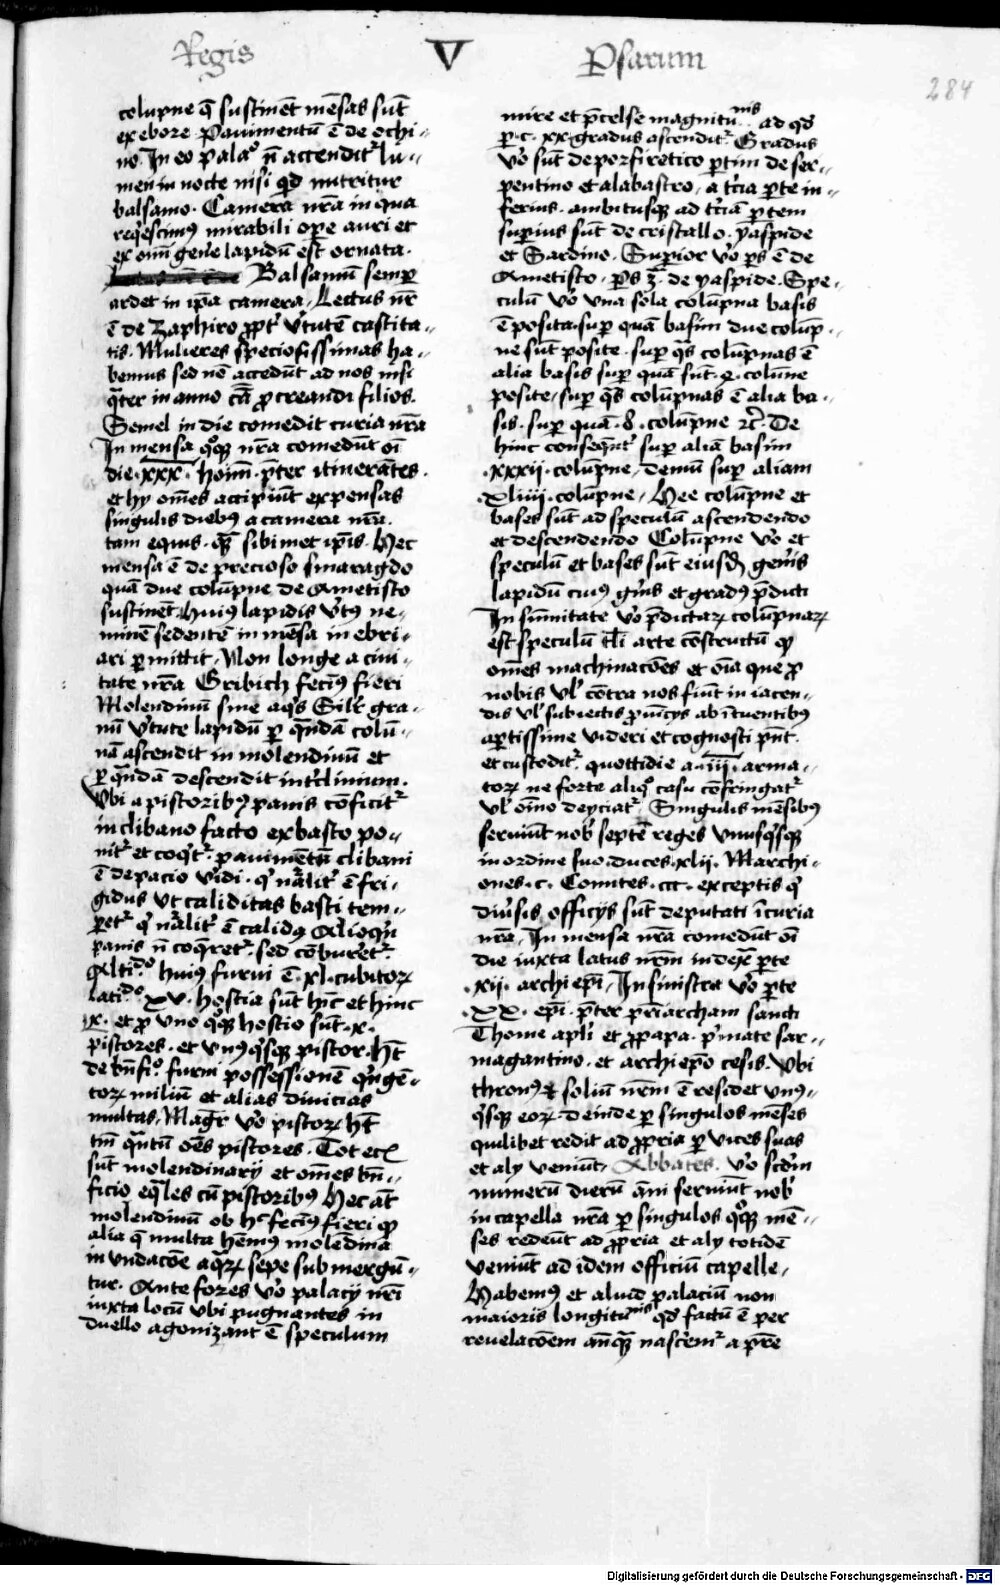 Regis V Psarum
284
colupne q̄ sustinēt mēsas sūt
ex ebore Pauimentū ē de ochi-
no. In eo palaº n̄ accenditᷣ lu-
men in nocte nisi qd nutritur
balsamo. Camera nr̄a in qua
reqescimꝰ mirabili oꝑe auri et
ex om̄i gen̄e lapidū est ornata.
Balsamū semꝑ
ardet in ip̄a camera, Lectus nr̄
ē de Zaphiro ꝓpt̄ v̄tutē castita-
tis. Mulieres speciosissimas ha-
bemus sed nō accedūt ad nos nisi
qᷓter in anno cā ꝓcreandi filios.
Semel in die comedit curia nr̄a
In mensa qͦꝫ nr̄a comedūt oī
die .xxx. hoīm. p̄ter itinerātes.
et hy om̄es accipiūt expensas
singulis diebꝰ a camera nr̄a.
tam equis. qᷓ sibimet ip̄is. Hec
mensa ē de precioso smaragdo
quā due colūpne de Ametisto
sustinēt. huiꝰ lapidis v̄tꝰ ne-
minē sedentē in mēsa inebri-
ari ꝑmittit. Non longe a ciui-
tate nr̄a Gribich fecimꝰ fieri
Molendinū sine aqᷓs Silr̄ gra-
nū v̄tute lapidū ꝑ qᷓndā colū-
nā ascendit in molendinū et
ꝑ qᷓndā descendit intc̄linium.
Vbi a pistoribꝰ panis cōficitᷣ
in clibano facto ex basto po-
nitᷣ et coqitᷣ. pauimētū clibani
ē de pacio vi͞di. qͥ nāl̄itᷣ ē fri-
gidus Vt caliditas basti tem-
ꝑetᷣ qͥ nāl̄itᷣ ē calidꝰ Alioqͥn
panis n̄ coqᷓretᷣ. sed cōburetᷣ.
Altiᵈº huiꝰ furni ē .xl. cubitoꝝ
latiᵈº xv. hostia sūt hīc et hinc
.x. et ꝓ vno qͦꝫ hostio sūt .x.
pistores. et vnꝰqͥsꝫ pistor hꝫ
de bn̄fº. furni possessionē qͥngē-
toꝝ miliū et alias diuicias
multas. Magr̄ vo pistoꝝ hꝫ
tm̄ qᷓntū oēs pistores. Tot etc̄
sūt molendinarij et om̄es bn̄-
ficio eqͣles cū pistoribꝰ Hec aūt
molendinū ob hͦ fecimꝰ fieri qꝫ
alia q̄ multa hēmꝰ molēdina
in vndacōe aqᷓꝝ sepe submergū-
tur. Ante fores vo palacij nr̄i
iuxta locū vbi pugnantes in
duello agonizant ē speculum
mire et p̄celse magnituᵐⁱˢ. ad qd
ꝑ .c. xx gradus ascenditᷣ. Gradus
vo sūt de porfiretico ꝑtim de ser-
pentino et alabastro, a tc̄ia ꝑte in-
ferius. ambitusqꝫ ad tc̄iā ꝑtem
suꝑius sūt de cristallo. yaspide
et Sardino. Suꝑior vo ꝑs ē de
Ametisto. ꝑs 3ᵃ. de yaspide. Spe-
culū vo vna sola colūpna basis
ē posita. suꝑ quā basim due colūp-
ne sūt posite. suꝑ qᷓs colūpnas ē
alia basis suꝑ quā sūt .4. colūne
posite, suꝑ qᷓs colūpnas ē alia ba-
sis. suꝑ quā .8. colūpne ꝛc̄. De
hinc conseqūntᷣ suꝑ aliā basim
.xxxii. colūpne, demū suꝑ aliam
.xliiii. colūpne, Hee colūpne et
bases sūt ad speculū ascendendo
et descendendo Colūpne vo et
speculū et bases sūt eiusdē gen̄is
lapidū cuiꝰ gn̄is et gradꝰ p̄dicti
In sūmitate vo p̄dictaꝝ colūpnaꝝ
est speculū tl̄i arte cōstructū qꝫ
om̄es machinacōes et oīa que ꝓ
nobis vl̓ cōtra nos fiūt in iacen-
dis vl̓ subiectis ꝓuīcijs ab ītuentibꝰ
aꝑtissime videri et cognosci pn̄t.
et custoditᷣ. quottidie a .iii. arma-
toꝝ ne forte aliqͦ casu cōfringatᷣ
vl̓ oīno deyciatᷣ. Singulis mēsibꝰ
seruiūt nob̄ septē reges vnusqͥsqꝫ
in ordine suo. duces .xlii. Marchi-
ones .c. Comites .ccc. exceptis qͥ
diūsis officijs sūt deputati ī curia
nr̄a. In mensa nr̄a comedūt oī
die iuxta latus nr̄m in dexᵃ ꝑte
.xii. archiepī. In sinistra vo ꝑte
.xx. epī. p̄ter pr̄iarcham sancti
Thome apl̄i et ꝓpapa. p̄mate sar-
magantino. et archiepō cesis. Vbi
thronꝰ et soliū nr̄m ē residet vnꝰ-
qͥsqꝫ eoꝝ. deinde ꝑ singulos mēses
quilibet redit ad ꝓpria ꝑ vices suas
et aly veniūt, Abbates. vo scd̄m
numerū dierū āni seruiūt nob̄
in capella nr̄a ꝑ singulos qͦꝫ mē-
ses redeūt ad ꝓpria et aly totidē
veniūt ad idem officiū capelle,
Habemꝰ et aliud palaciū non
maioris longituᵐⁱˢ qd factū ē per
reuelacōem anqᷓ nascemᷣ a pr̄e
Digitalisierung gefördert durch die Deutsche Forschungsgemeinschaft - DFG